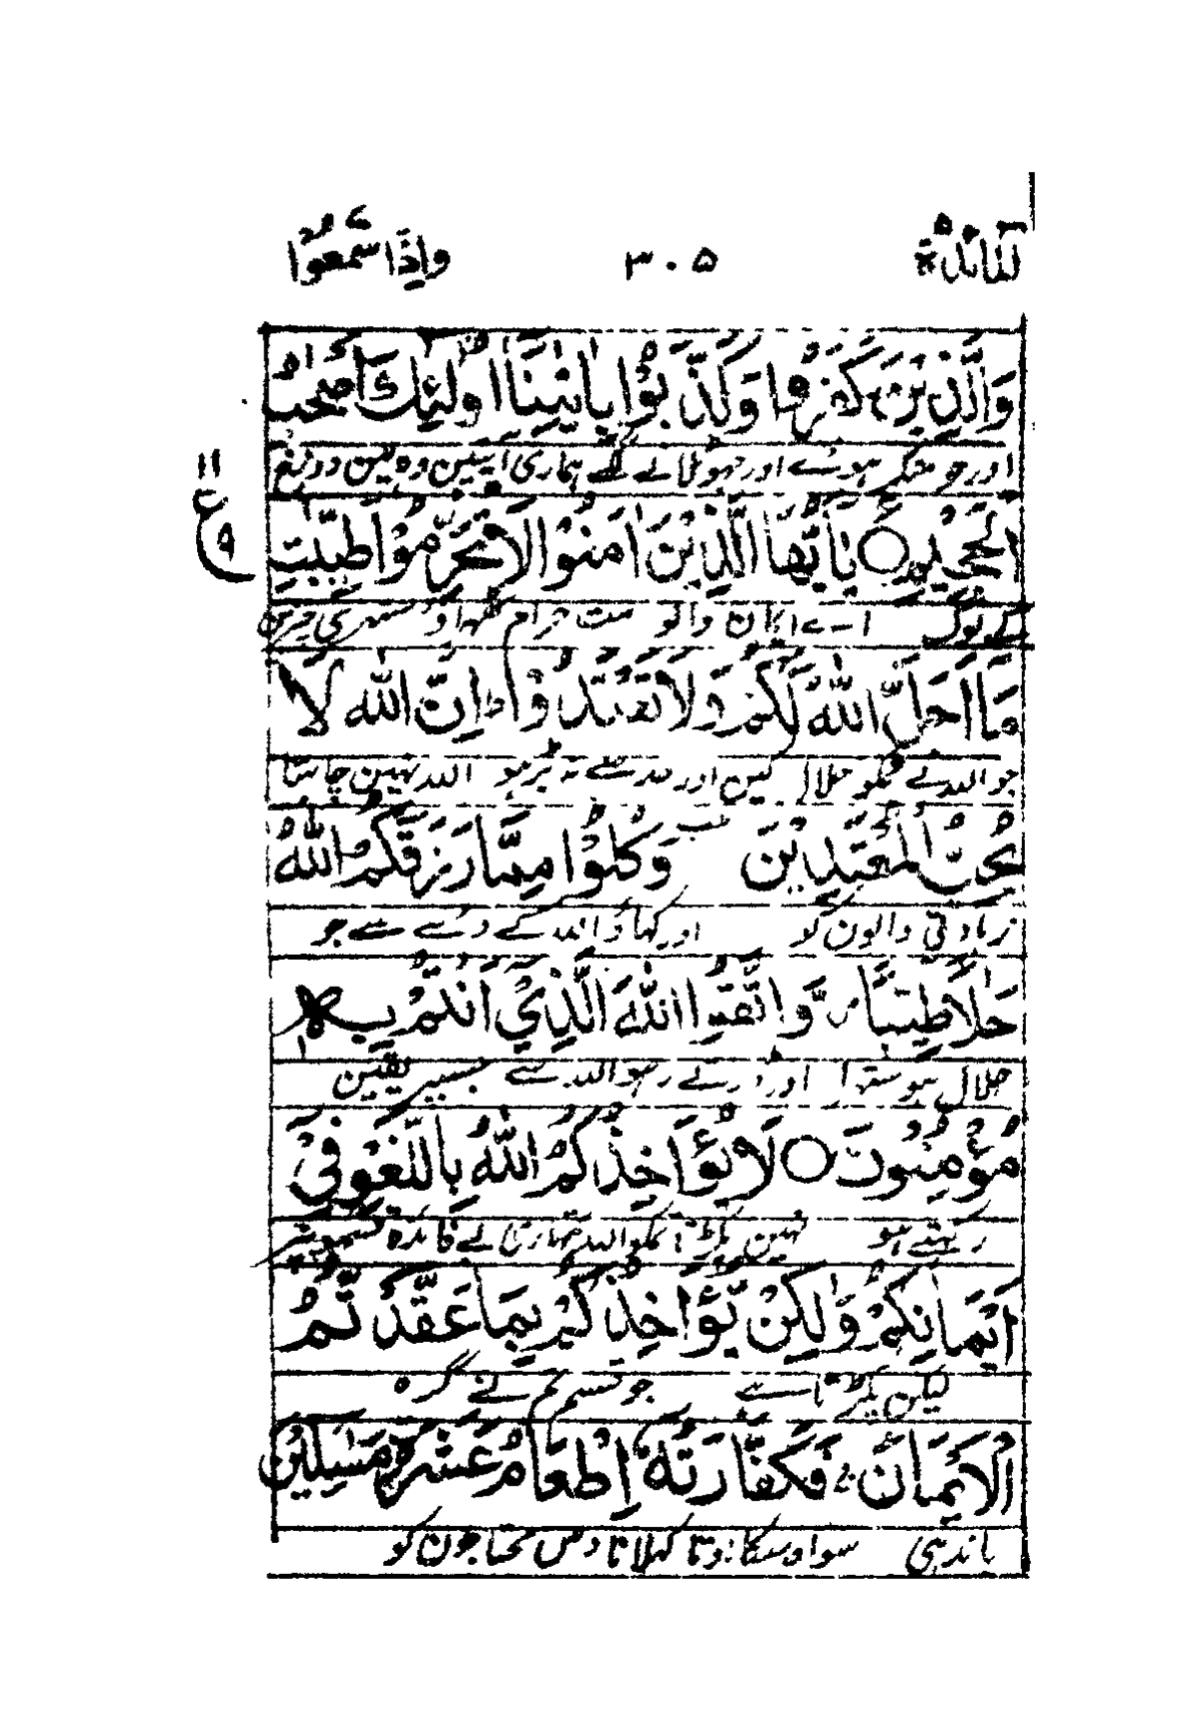 المائدة ۵ ۳۰۵ واذا سمعوا
وَالَّذِيْنَ كَفَرُوْا وَكَذَّبُوْا بِاٰيٰتِنَا اُولٰٓئِكَ اَصْحٰبُ
اور جو منکر ہوئے اور جھوٹلانے لگے ہماری آیتین وہ ہین دوزخ
الْجَحِيْمِ ○ يٰاَيُّهَا الَّذِيْنَ اٰمَنُوْا لَا تُحَرِّمُوْا طَيِّبٰتِ
۱۱ ع ۹
کے لوگ اے ایمان والو مت حرام ٹھہراؤ ستھری چیزین
مَا اَحَلَّ اللّٰهُ لَكُمْ وَلَا تَعْتَدُوْا ط اِنَّ اللّٰهَ لَا
جو اللہ نے تمکو حلال کین اور حد سے نہ بڑہو اللہ نہین چاہتا
يُحِبُّ الْمُعْتَدِيْنَ وَكُلُوْا مِمَّا رَزَقَكُمُ اللّٰهُ
زیادتی والون کو اور کھاؤ اللہ کے دئے سے جو
حَلٰلًا طَيِّبًا ص وَّاتَّقُوا اللّٰهَ الَّذِيْ اَنْتُمْ بِهٖ
حلال ہو ستھرا اور ڈرتے رہو اللہ سے جسپر یقین
مُؤْمِنُوْنَ ○ لَا يُؤَاخِذُكُمُ اللّٰهُ بِاللَّغْوِ فِيْ
رکھتے ہو نہین پکڑتا تمکو اللہ تمہاری بے فائدہ قسمونپر
اَيْمَانِكُمْ وَلٰكِنْ يُّؤَاخِذُكُمْ بِمَا عَقَّدْتُّمُ
لیکن پکڑتا ہے جو قسم تم نے گرہ
الْاَيْمَانَ ج فَكَفَّارَتُهٗ اِطْعَامُ عَشَرَةِ مَسٰكِيْنَ
باندہی سو اوسکا اوتا کہلانا دس محتاجون کو